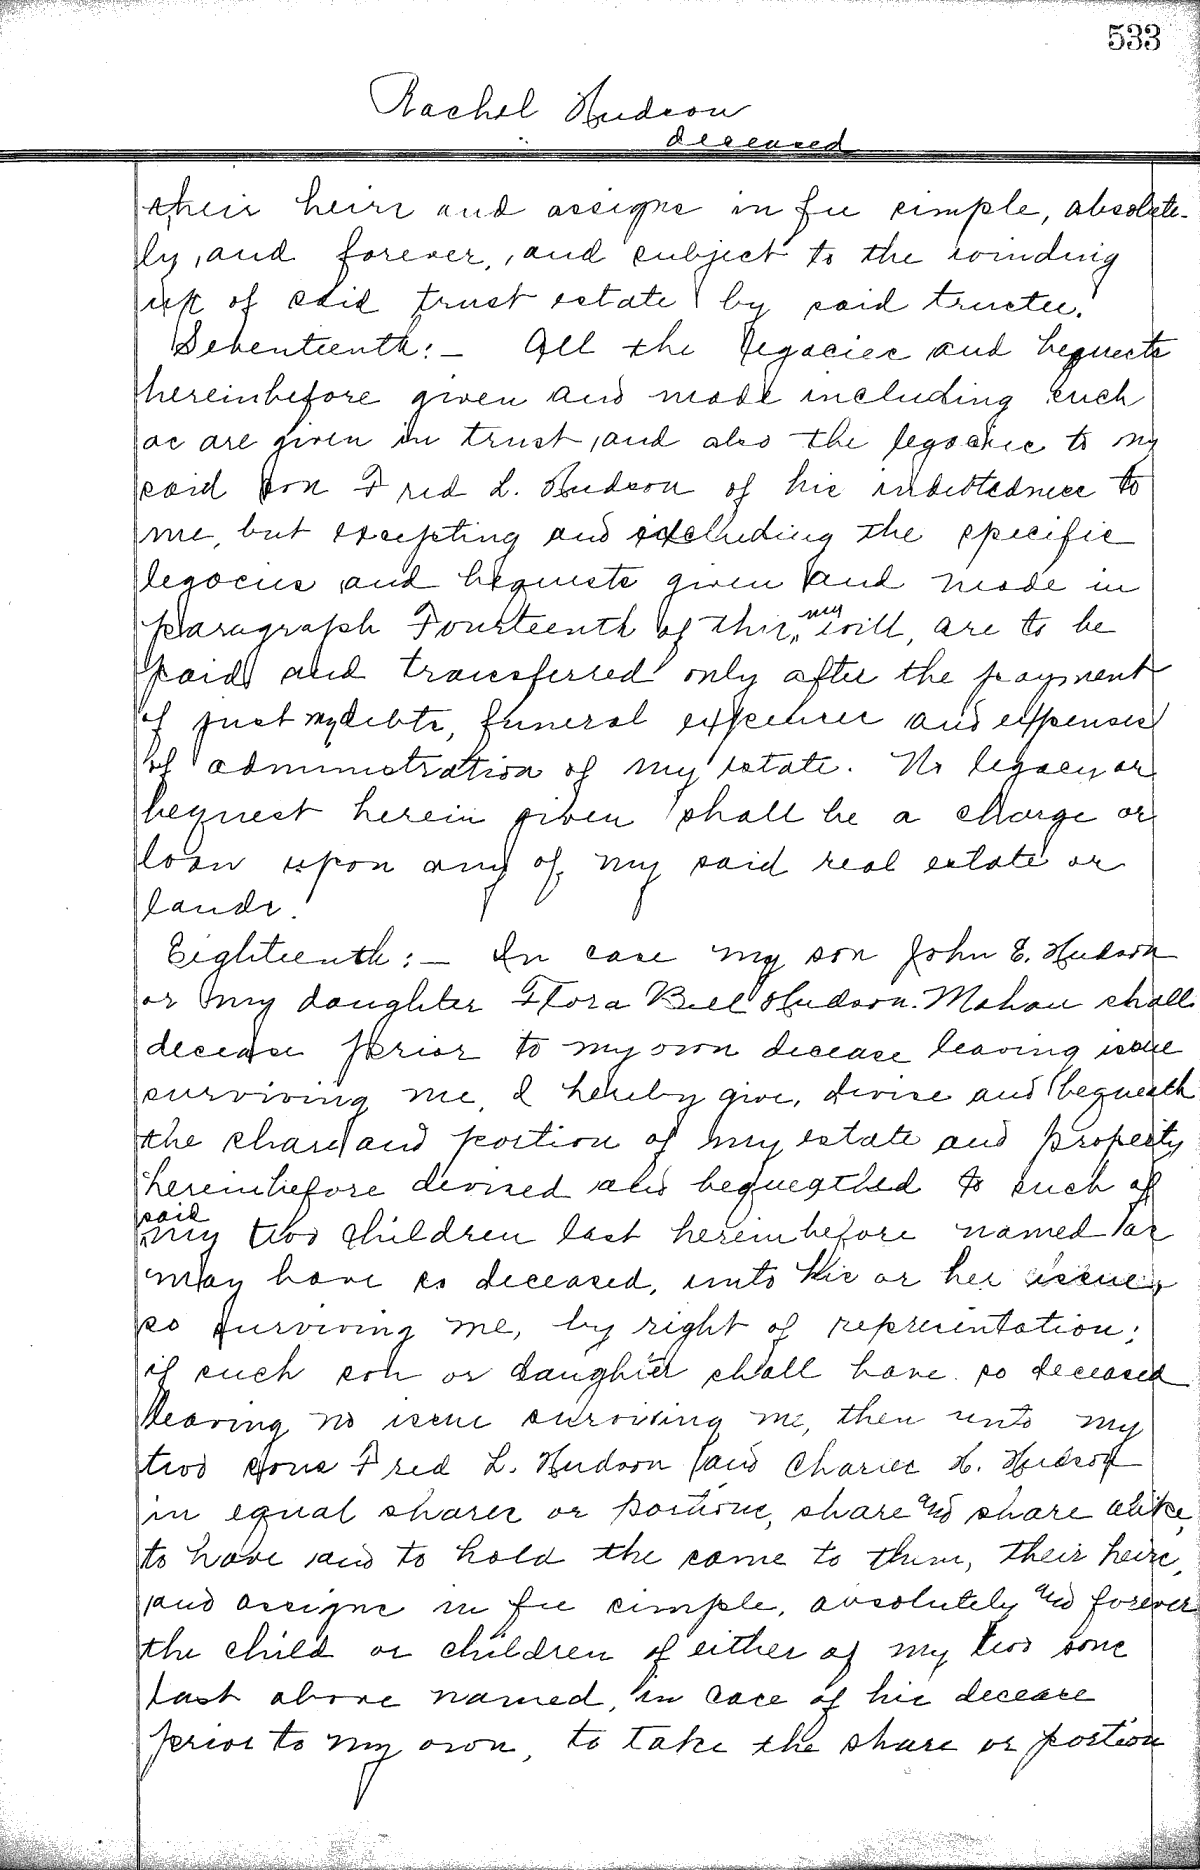 533
Rachel Hudson
deceased
their heirs and assigns in fee simple, absolute-
ly, and forever, and subject to the winding
up of said trust estate by said trustee.
Seventeenth:- All the legacies and bequests
hereinbefore given and made including such
as are given in trust, and also the legacie to my
said son Fred L. Hudson of his indebtedness to
me, but excepting and excluding the specific
legacies and bequests given and made in
paragraph Fourteenth of this, my will, are to be
paid and transferred only after the payment
of just my debts, funeral expenses and expenses
of administration of my estate. No legacy or
bequest herein given shall be a charge or
loan upon any of my said real estate or
lands.
Eighteenth:- In case my son John E. Hudson
or my daughter Flora Bell Hudson Mahan shall
decease prior to my own decease leaving issue
surviving me, I hereby give, devise and bequeath
the share and portion of my estate and property
hereinbefore devised and bequeathed to such of
said
my two children last hereinbefore named as
may have so deceased, unto his or her issue,
so surviving me, by right of representation;
if such son or daughter shall have so deceased
leaving no issue surviving me, then unto my
two sons Fred L. Hudson and Charles H. Hudson
in equal shares or portions, share and share alike,
to have and to hold the same to them, their heirs,
and assigns in fee simple, absolutely and forever
the child or children of either of my two sons
last above named, in case of his decease
prior to my own, to take the share or portion